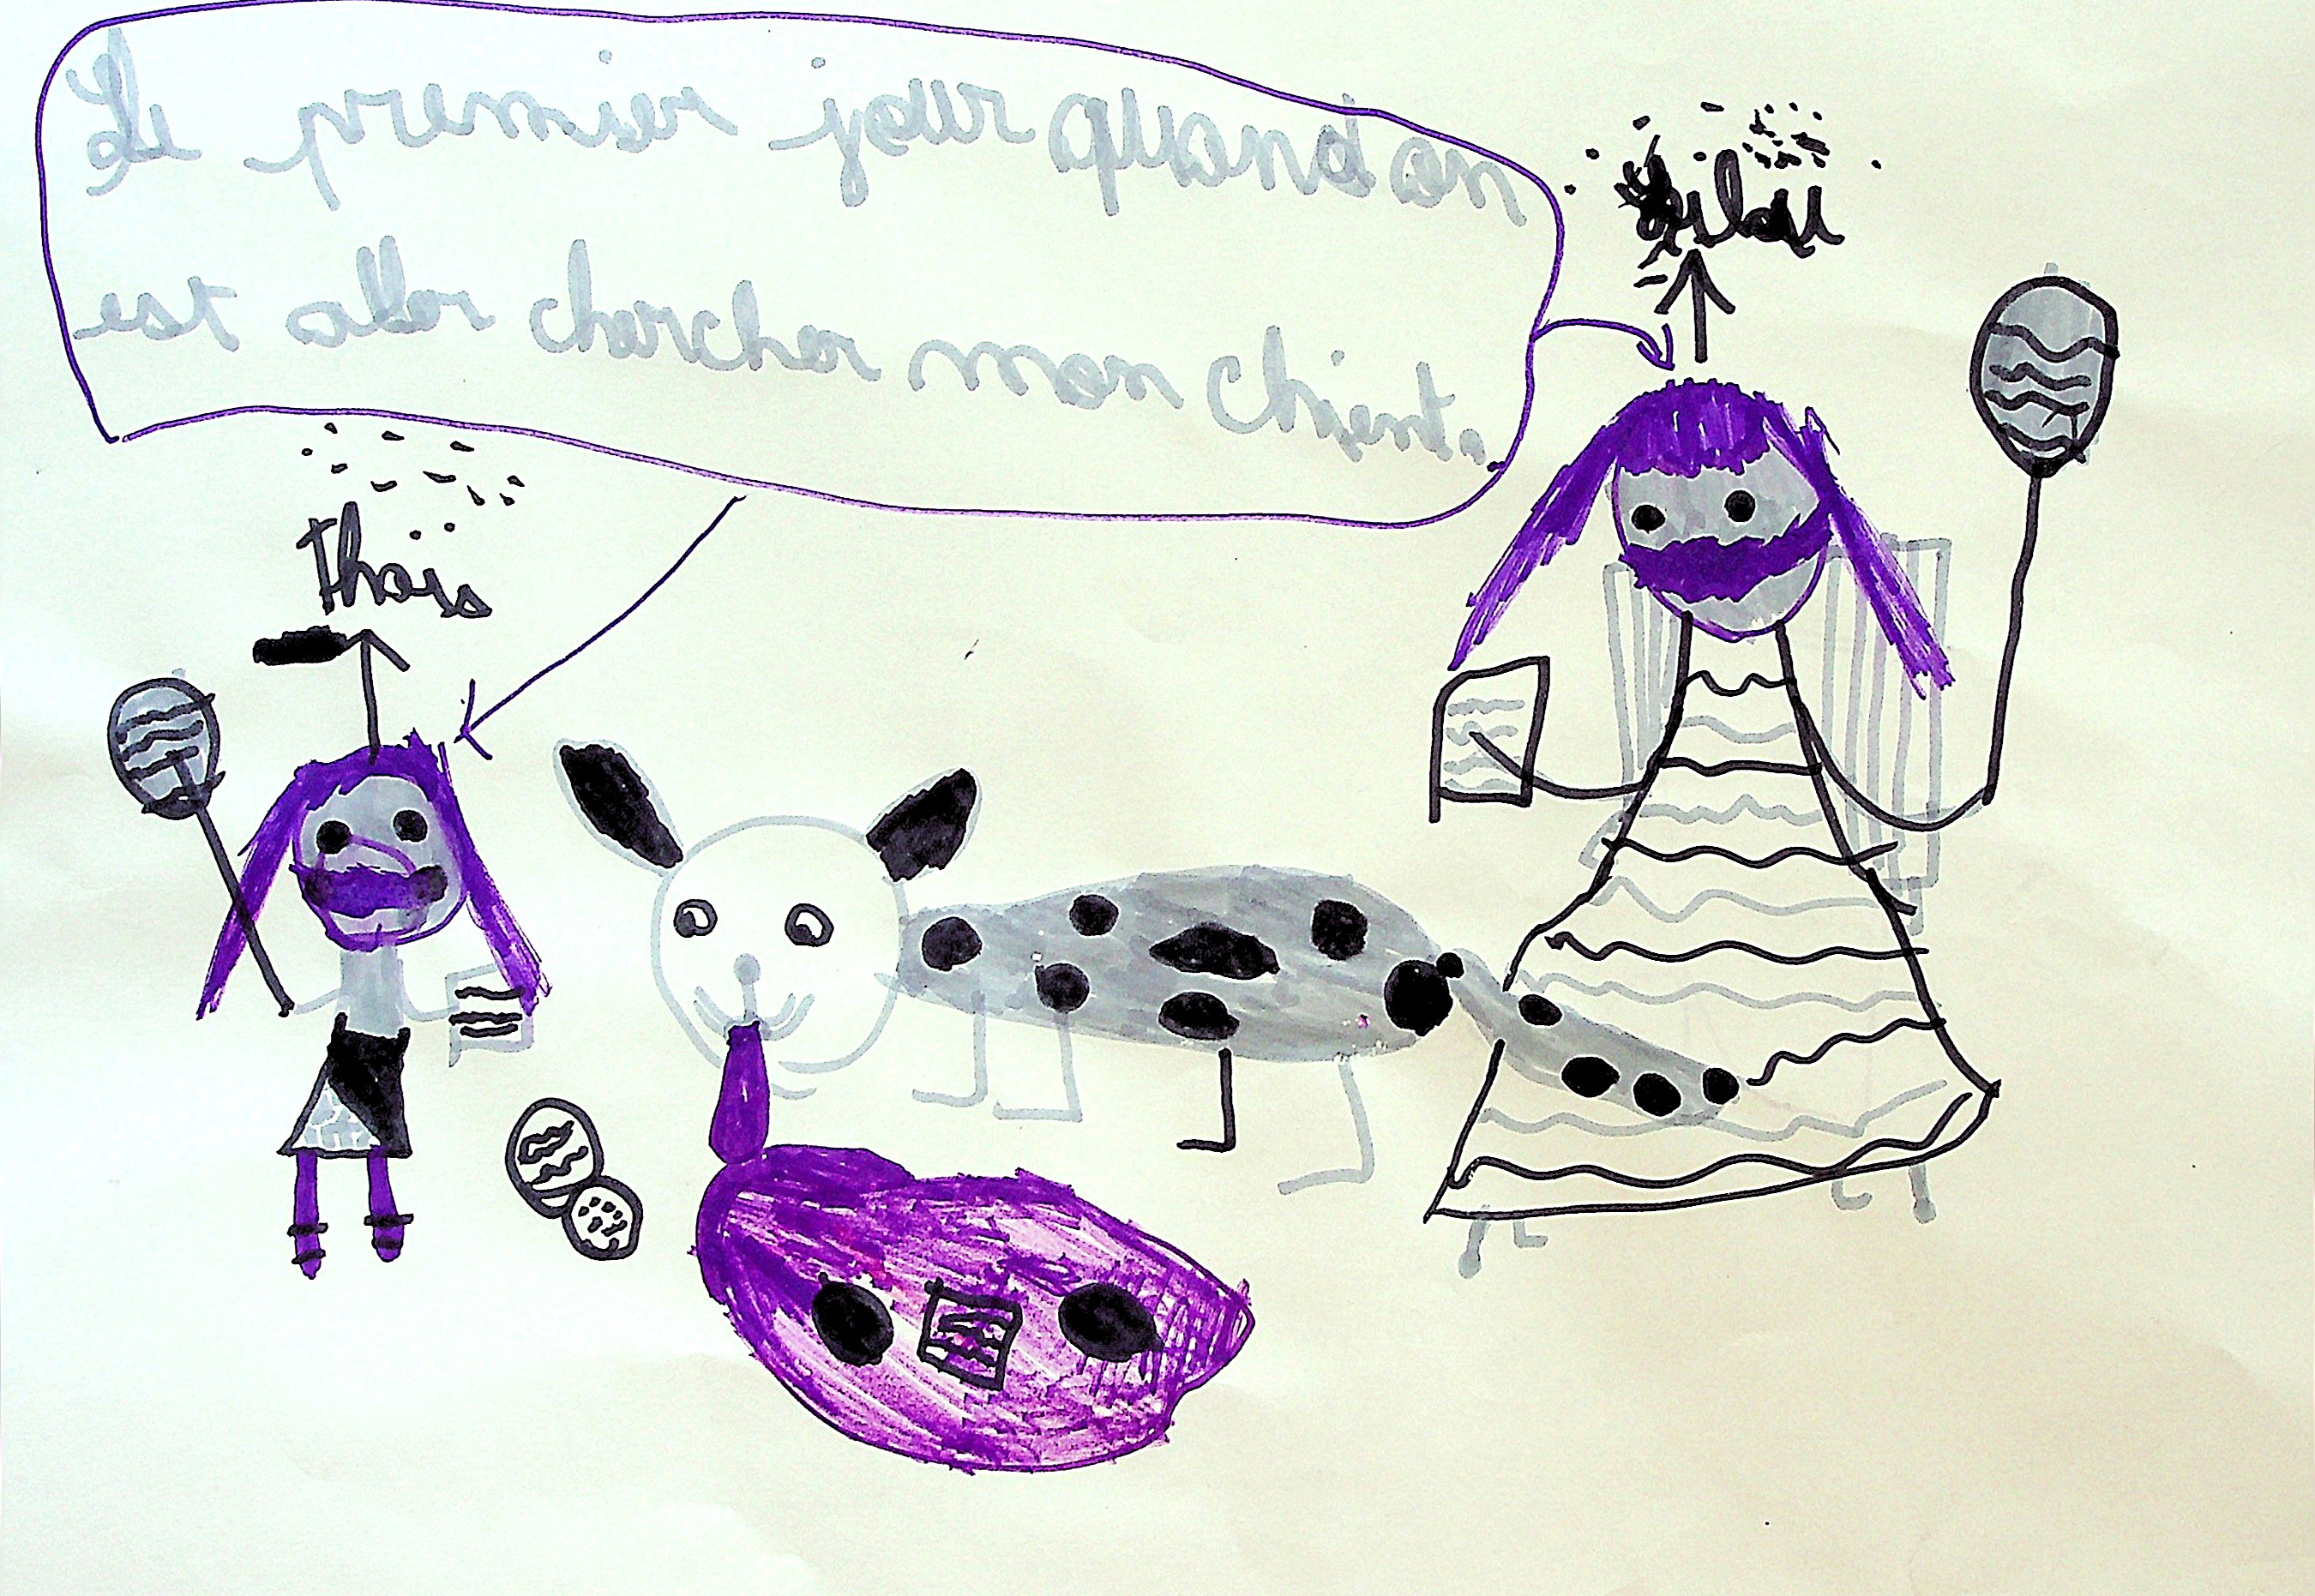 Le premier jour quand on
est aller chercher mon chient.
Thaïs